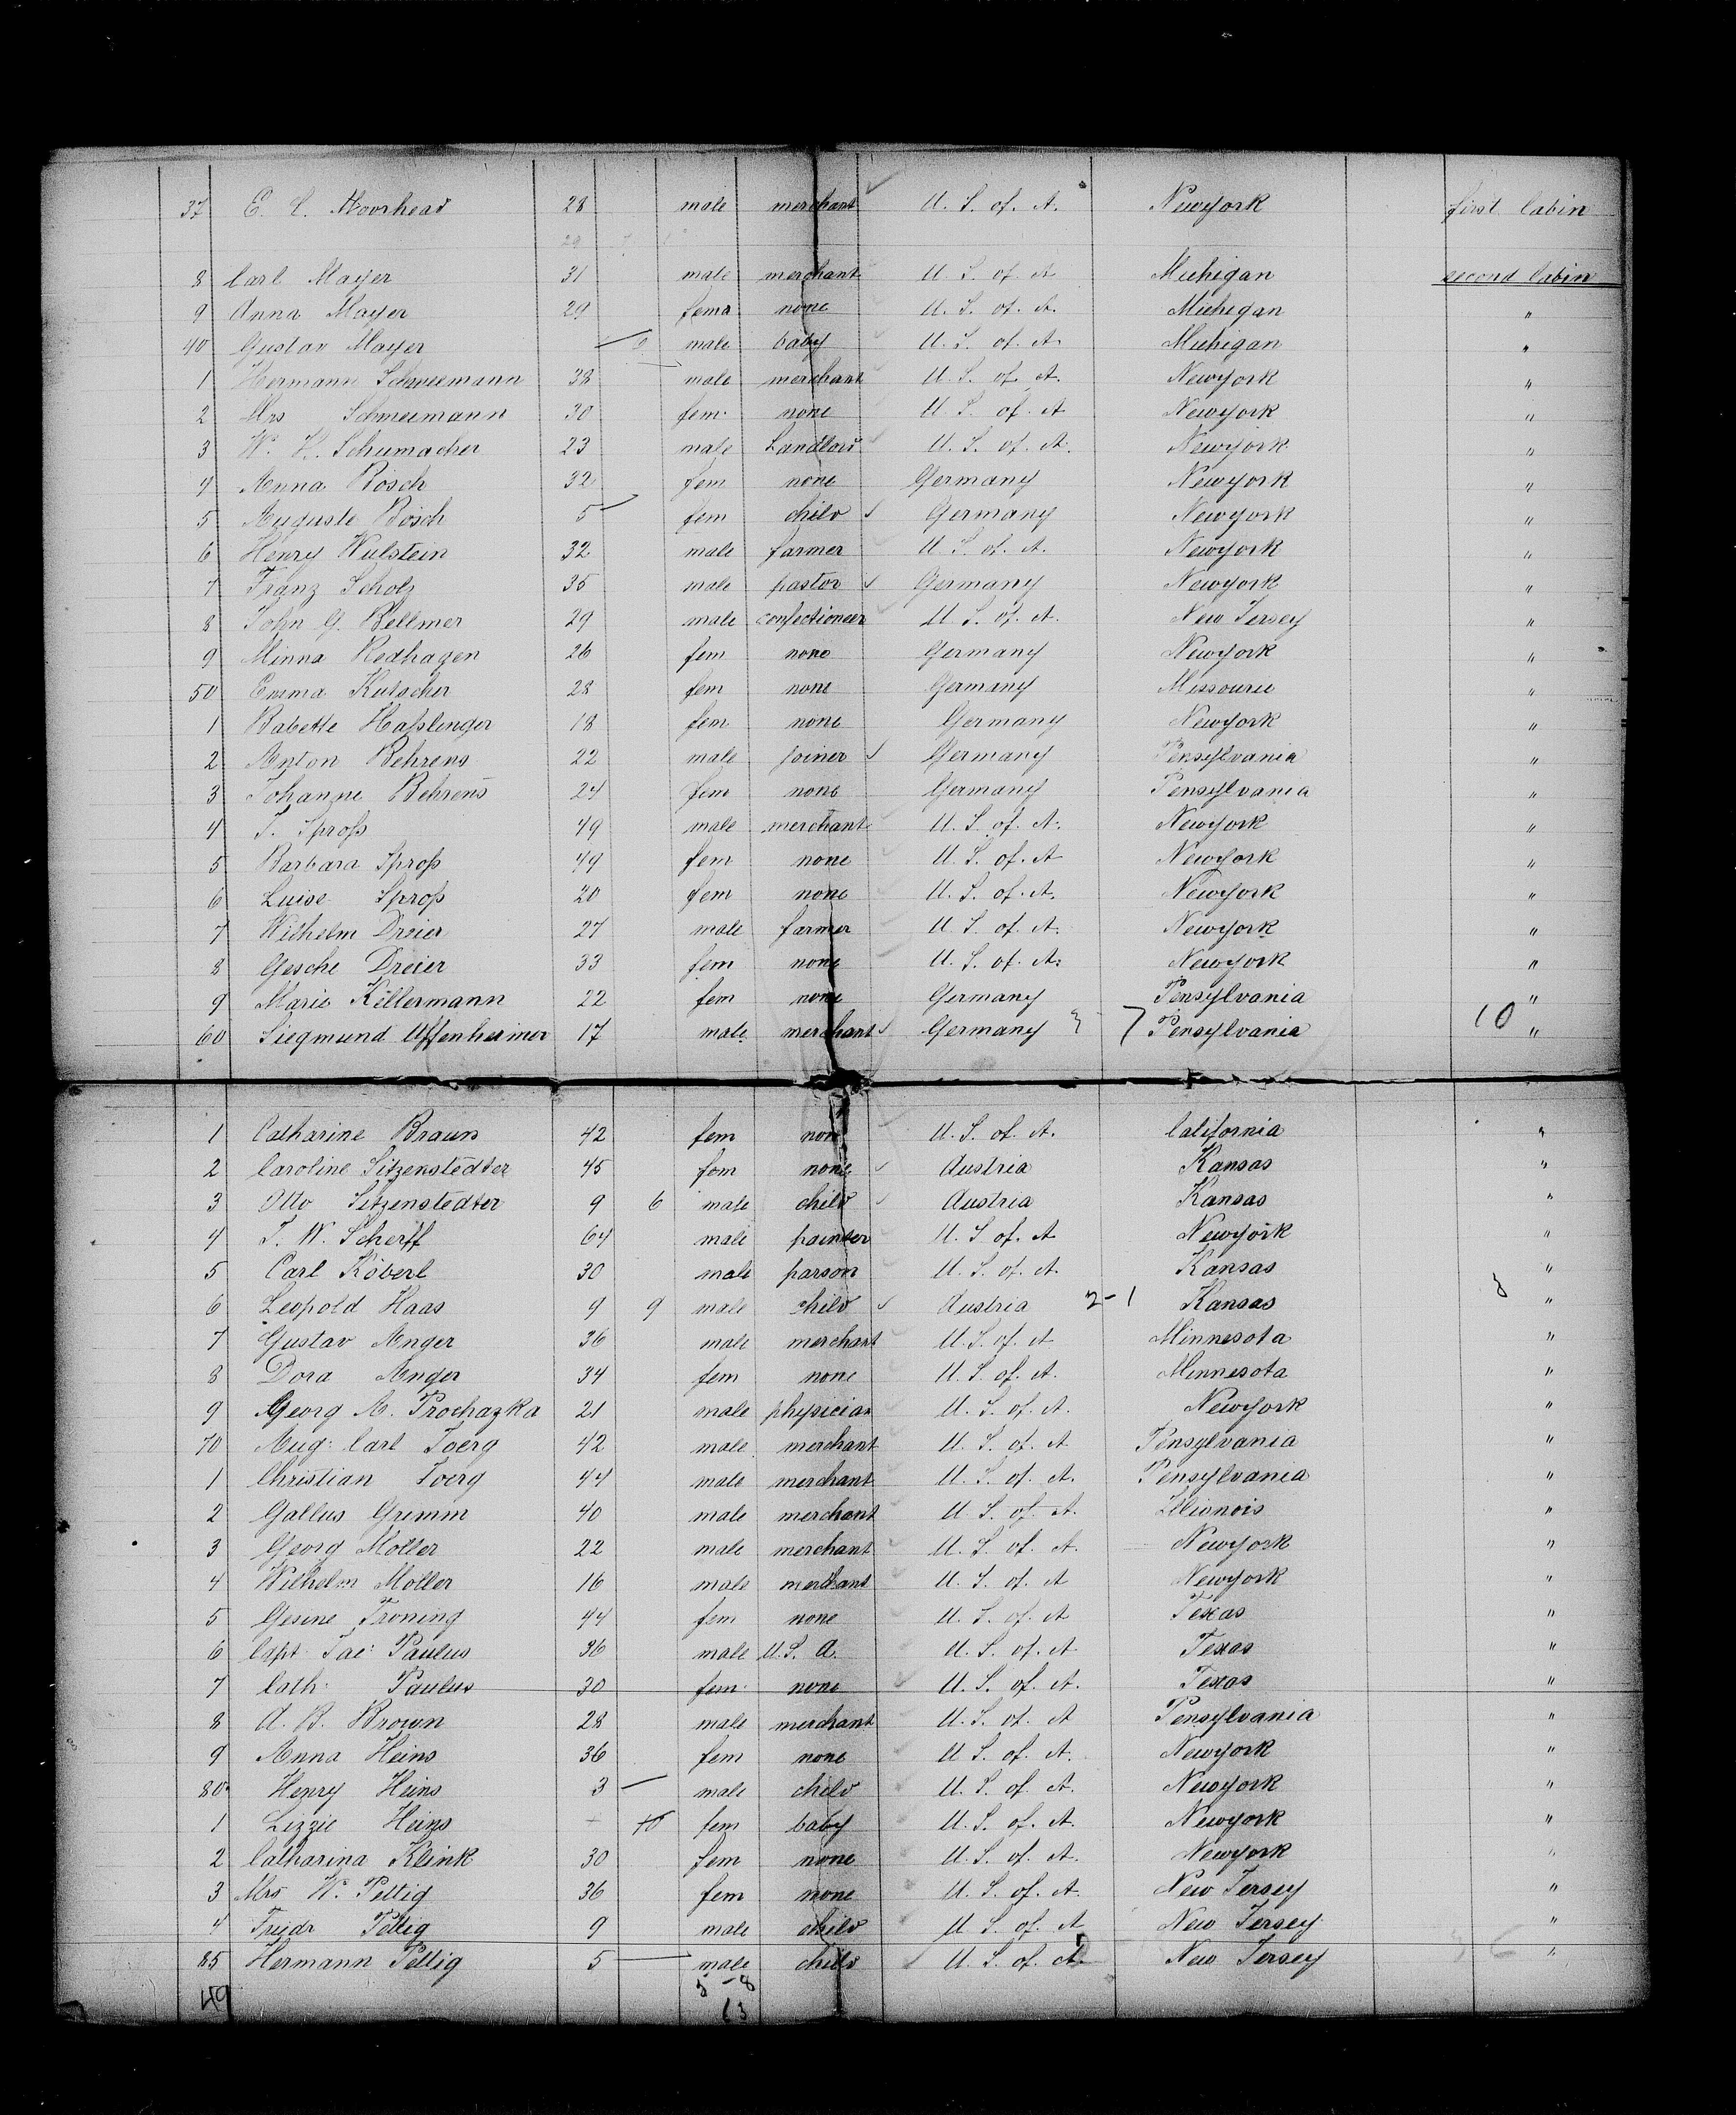 37 E. C. Moorhead 28 male merchant U. S. of. A. Newyork first Cabin
8 Carl Mayer 31 male merchant U. S. of A Michigan second Cabin
9 Anna Mayer 29 fema none U. S. of. A. Michigan "
40 Gustav Mayer male baby U. S. of A. Michigan "
1 Hermann 38 male merchant U. S. of. A. Newyork "
2 Mrs 30 fem. none U. S. of. A Newyork "
3 W. H. Schumacher 23 male U. S. of. A. Newyork "
4 Anna Bosch 32 fem none Germany Newyork "
5 Auguste Bosch 5 — fem child Germany Newyork "
6 Henry Wulstein 32 male farmer U. S. of. A. Newyork "
7 Franz Scholz 35 male pastor Germany Newyork "
8 John G. Bellmer 29 male confectioneer U. S. of. A. New Jersey "
9 Minna Redhagen 26 fem none Germany Newyork "
50 Emma Kutscher 28 fem none Germany Missourie "
1 Babette Haßlinger 18 fem. none Germany Newyork "
2 Anton Behrens 22 male joiner Germany Pensylvania "
3 Johanne Behrens 24 fem none Germany Pensylvania "
4 J. Sproß 49 male merchant U. S. of. A. Newyork "
5 Barbara Sproß 44 fem none U. S. of. A Newyork "
6 Luise Sproß 20 fem none U. S. of. A. Newyork "
7 Wilhelm Dreier 27 male farmer U. S. of A. Newyork "
8 Gesche Dreier 33 fem none U. S. of. A. Newyork "
9 Marie Kellermann 22 fem none Germany Pensylvania "
60 Siegmund Uffenheimer 17 male merchant Germany 7 Pensylvania 10 "
1 Catharine Braun 42 fem none U. S. of. A. California "
2 Caroline Sitzenstedter 45 fem none Austria Kansas "
3 Otto Sitzenstedter 9 6 male child Austria Kansas "
4 J. W. Scherff 64 male painter U. S of. A Newyork "
5 Carl Köberl 30 male parson U. S. of. A. Kansas "
6 Leopold Haas 9 9 male child Austria 2-1 Kansas 8 "
7 Gustav Anger 36 male merchant U. S. of A Minnesota "
8 Dora Anger 34 fem none U. S. of. A. Minnesota "
9 Georg A. Prochazka 21 male physician U. S. of. A. Newyork "
70 Aug: Carl Joerg 42 male merchant U. S. of A Pensylvania "
1 Christian Joerg 44 male merchant U. S. of. A. Pensylvania "
2 Gallus Grimm 40 male merchant U. S. of A. Illionois "
3 Georg Moller 22 male merchant U. S. of. A. Newyork "
4 Wilhelm Moller 16 male merchant U. S. of. A Newyork "
5 Gesine Troning 44 fem none U. S. of A Texas "
6 Capt. Jac: Paulus 36 male U. S. A. U. S. of. A Texas "
7 Cath: Paulus 30 fem. none U. S. of. A. Texas "
8 A. B. Brown 28 male merchant U. S. of. A Pensylvania "
9 Anna Heins 36 fem none U S. of. A. Newyork "
80 Henry Heins 3 — male child U. S. of A. Newyork "
1 Lizzie Heins fem baby U. S. of. A. Newyork "
2 Catharina Klink 30 fem none U. S. of A. Newyork "
3 Mrs W. Pettig 36 fem none U. S. of. A. New Jersey "
4 Friedr Pettig 9 male child U. S. of. A New Jersey "
85 Hermann Pettig 5 — male child U. S. of A. New Jersey "
49 5-8
13